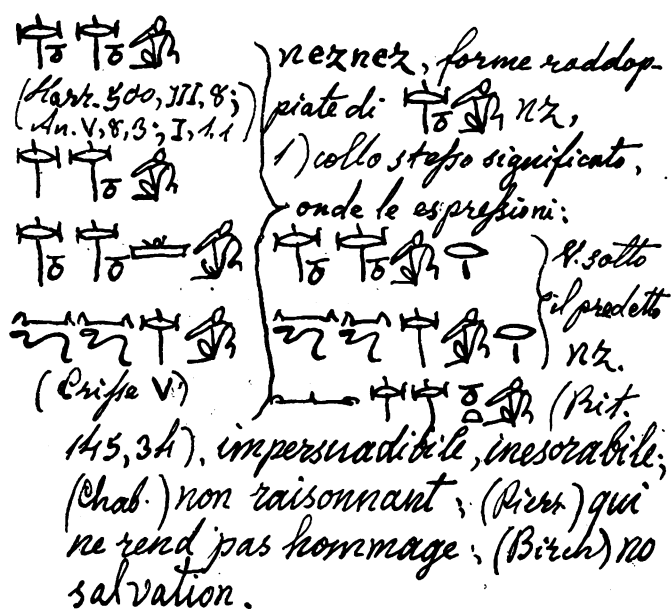 (Harr. 500, III, 8;
An. V, 8, 3; I, 1, 1)
(Crisse V)
neznez, forme raddop-
piate di nz,
1) collo stesso significato,
onde le espressioni:
V. sotto
il predetto
nz.
(Rit.
145, 34), impersuadibile, inesorabile;
(Chab.) non raisonnant; (Pierr) qui
ne rend pas hommage; (Birch) no
salvation.